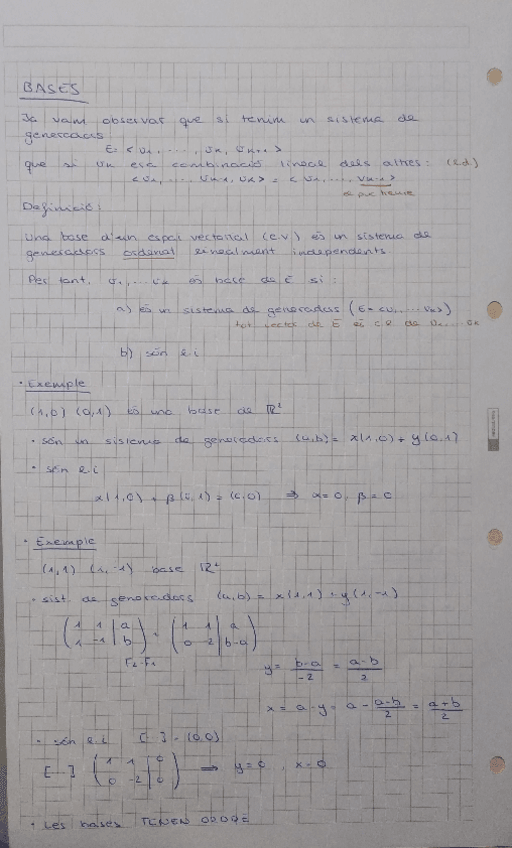 BASES
Ja vam observar que si tenim un sistema de
generadors
E = < v1, ..., vk, vk+1 >
que si vk era combinació lineal dels altres: (l.d)
< v1, ..., vk-1, vk > = < v1, ..., vk-1 >
Definició:
Una base d'un espai vectorial (e.v) és un sistema de
generadors ordenat linealment independents
Per tant, v1, ... vk és base de E si:
a) és un sistema de generadors (E = <v1, ... vk>)
tot vector de E és c.l de v1 ... vk
b) són l.i
· Exemple
(1,0) (0,1) és una base de ℝ²
· són un sistema de generadors (a,b) = x(1,0) + y(0,1)
· són l.i
α(1,0) + β(0,1) = (0,0) ⇒ α=0, β=0
· Exemple
(1,1) (1,-1) base ℝ²
· sist. de generadors (a,b) = x(1,1) + y(1,-1)
(1 1 | a
1 -1 | b) · (1 1 | a
0 -2 | b-a)
F2-F1
y = b-a/-2 = a-b/2
x = a - y = a - a-b/2 = a+b/2
· són l.i [...] = (0,0)
[...] (1 1 | 0
0 -2 | 0) ⇒ y=0, x=0
· Les bases TENEN ORDRE